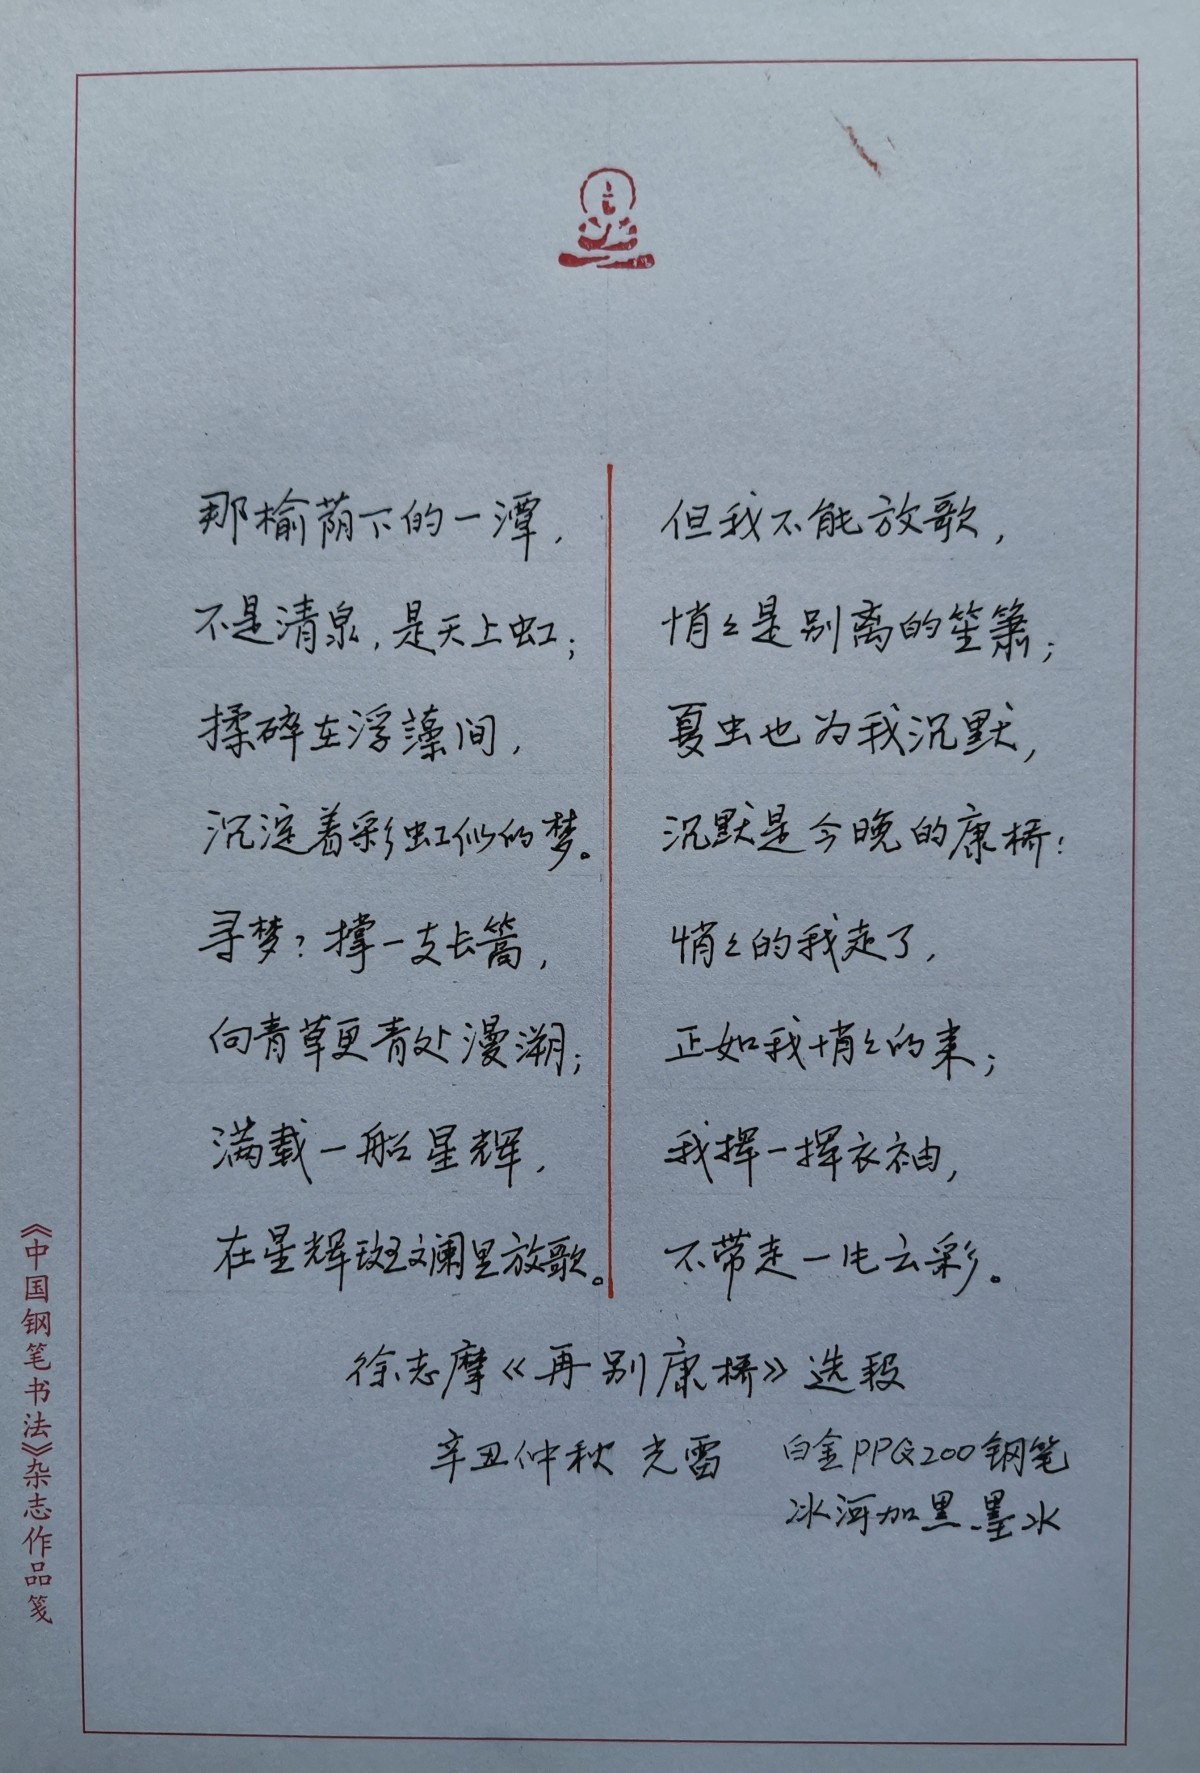 那榆荫下的一潭，
不是清泉，是天上虹；
揉碎在浮藻间，
沉淀着彩虹似的梦。
寻梦？撑一支长篙，
向青草更青处漫溯；
满载一船星辉，
在星辉斑斓里放歌。
但我不能放歌，
悄々是别离的笙箫；
夏虫也为我沉默，
沉默是今晚的康桥！
悄々的我走了，
正如我悄々的来；
我挥一挥衣袖，
不带走一片云彩。
徐志摩《再别康桥》选段
辛丑仲秋 光雷
白金PPQ200钢笔
冰河加黑墨水
《中国钢笔书法》杂志作品笺